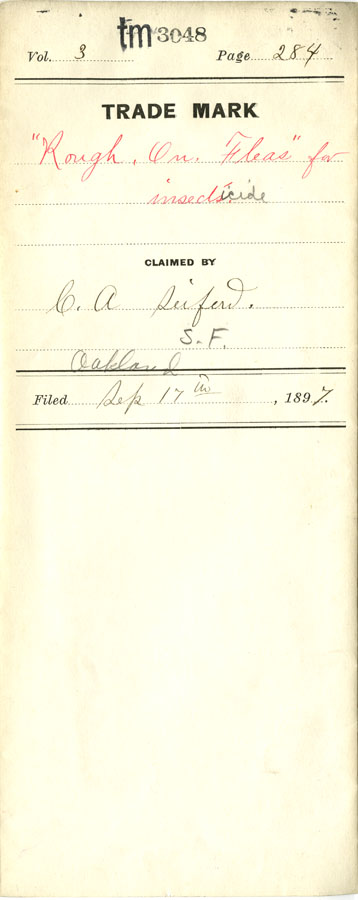 tm 3048
Vol. 3 Page 284
TRADE MARK
"Rough. On. Fleas" for
insecticide
CLAIMED BY
C. A Seiferd.
S.F.
Oakland
Filed Sep 17th, 1897.